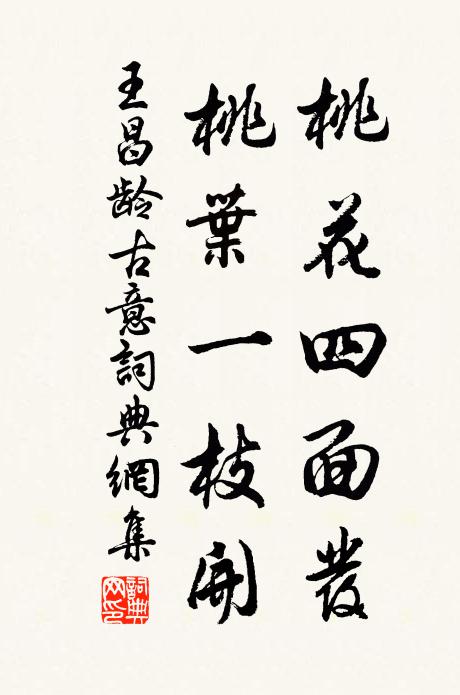 桃花四面發
桃葉一枝開
王昌龄古意詞典網集
詞典网印